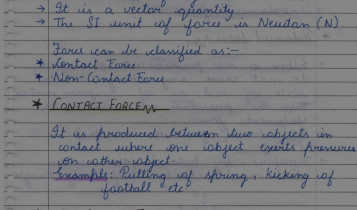 → It is a vector quantity
→ The SI unit of force is Newton (N)
Force can be classified as:-
* Contact Force
* Non-Contact Force
* CONTACT FORCE
It is produced between two objects in
contact where one object exerts pressure
on other object
Example: Pulling of spring, kicking of
football etc